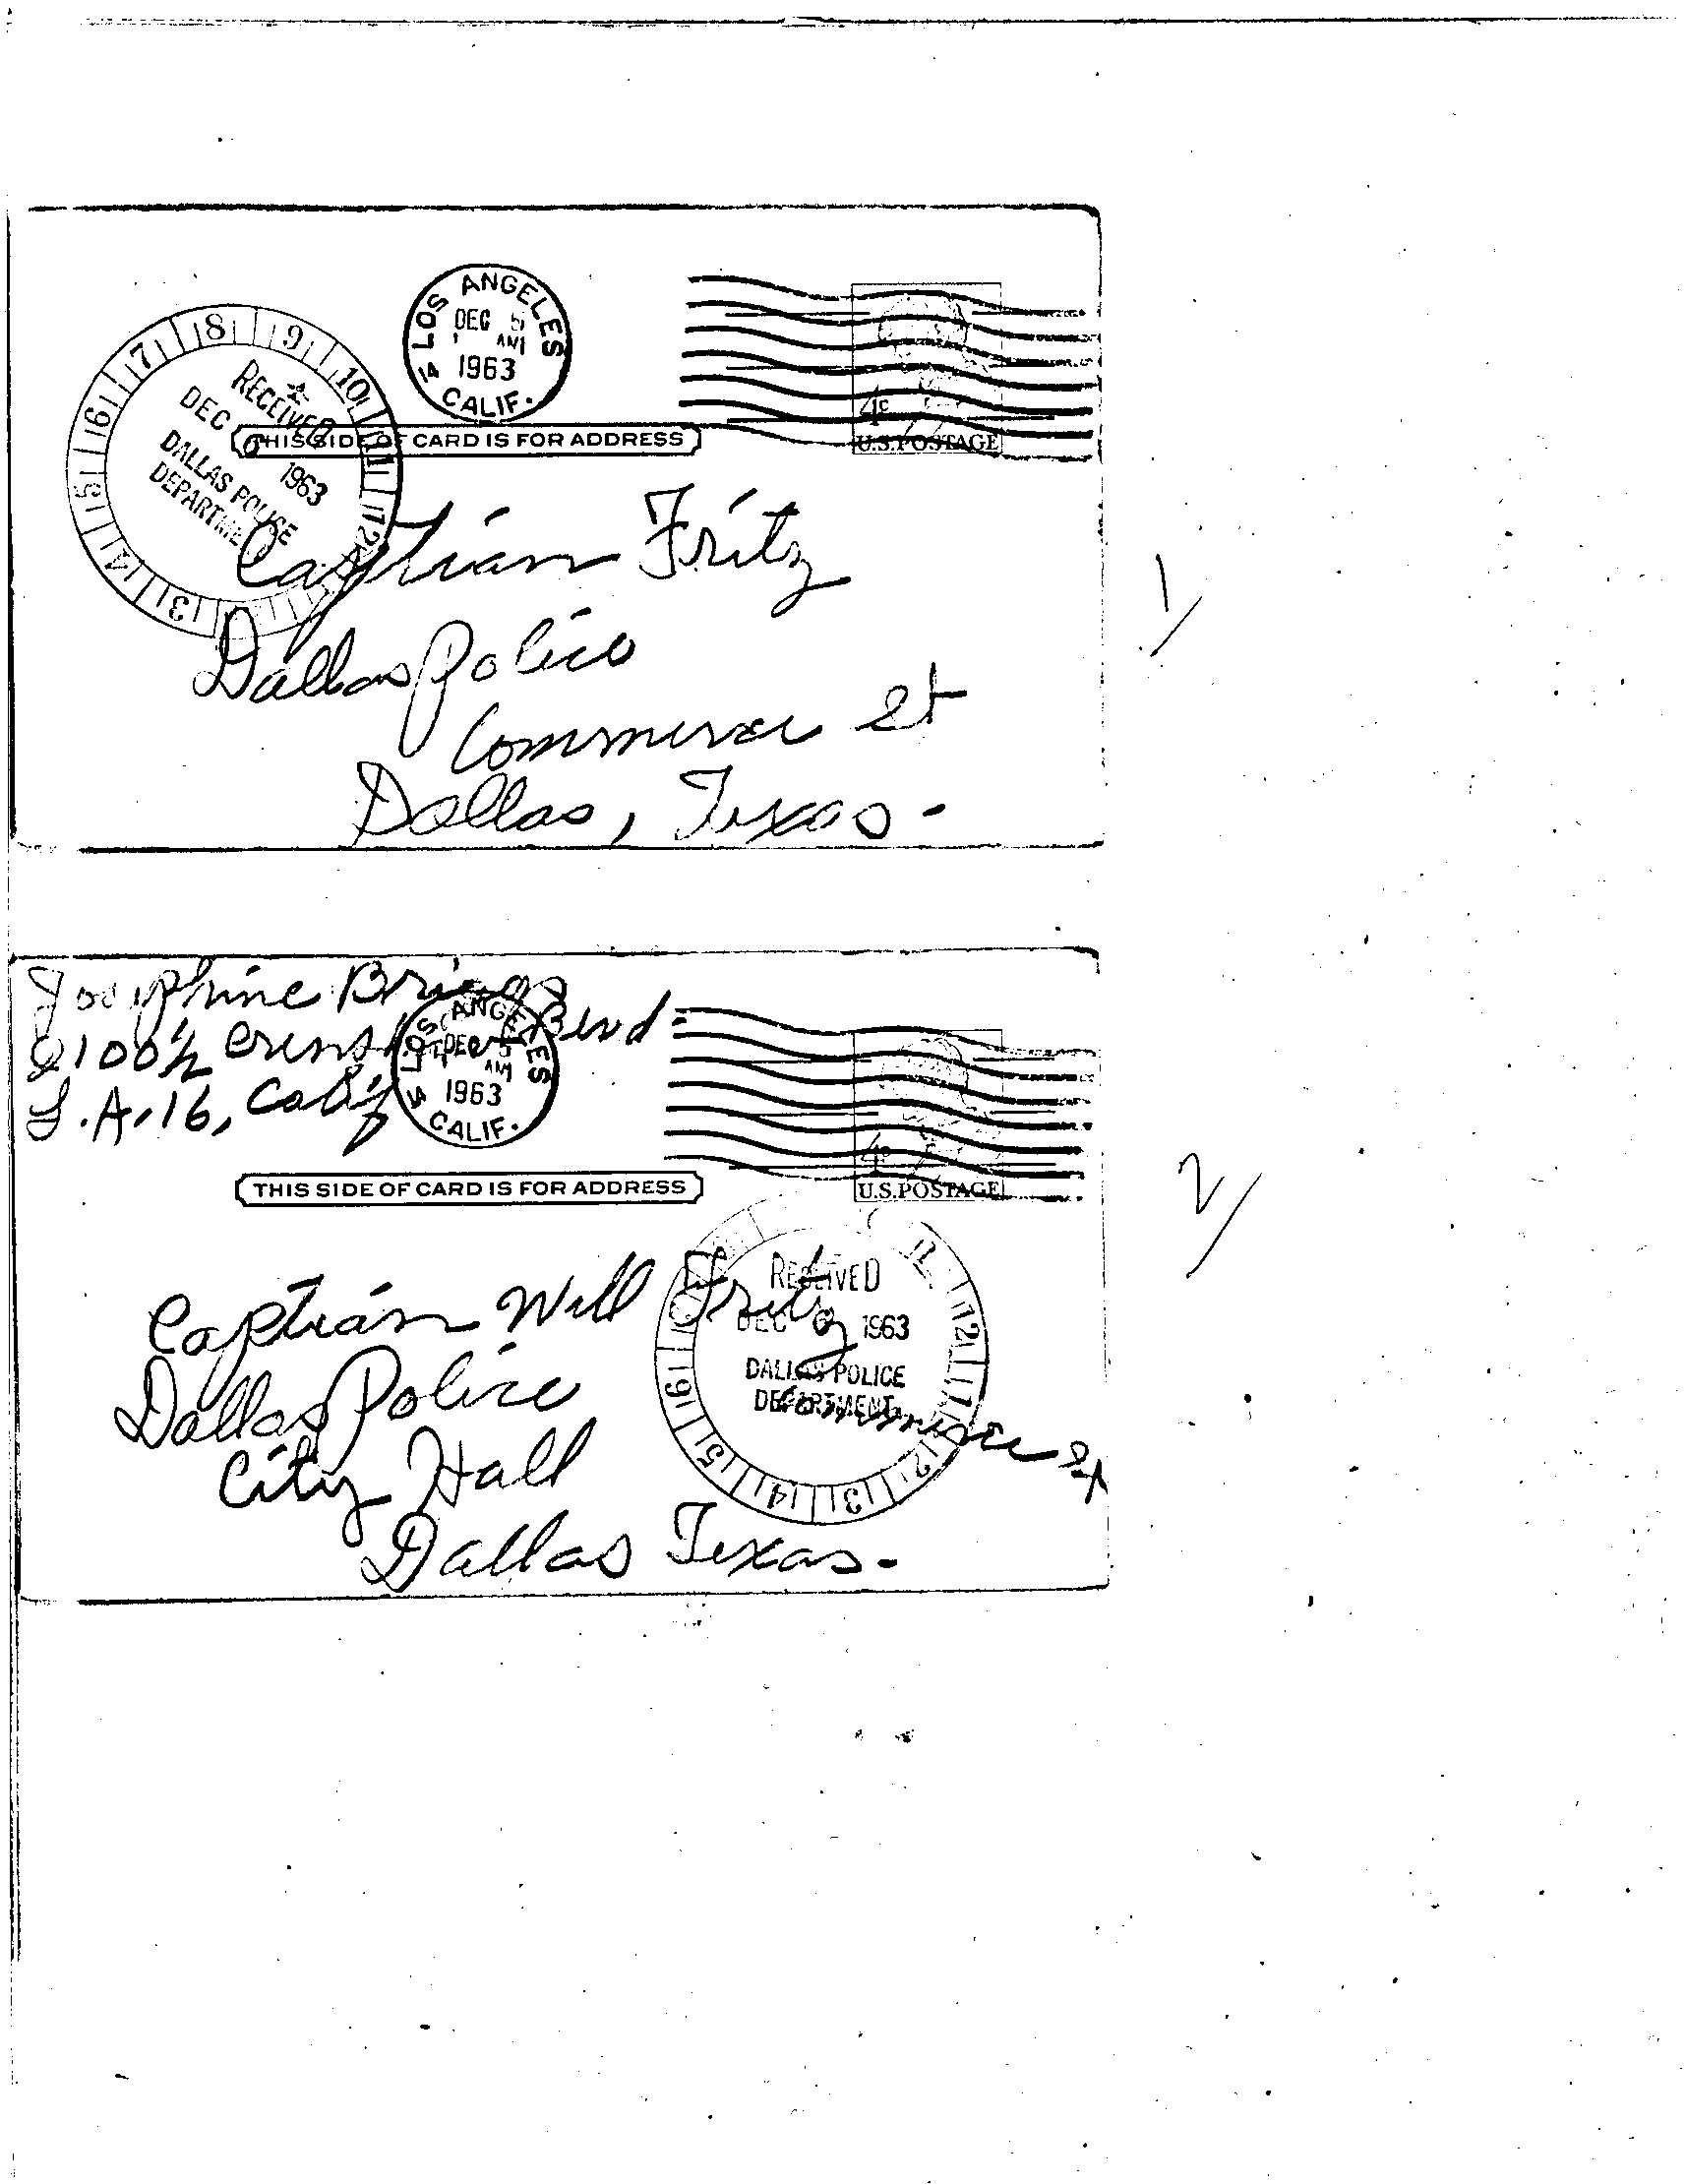 LOS ANGELES
DEC 5
AM
1963
14
CALIF.
8 9 10 11 12
7 6 5 4 3
RECEIVED
DEC 6 1963
DALLAS POLICE
DEPARTMENT
THIS SIDE OF CARD IS FOR ADDRESS
4¢
U.S. POSTAGE
Captian Fritz
Dallas Police
Commerce St
Dallas, Texas.
1/
Josephine Briggs
2100½ Crenshaw Blvd.
L.A. 16, Calif
LOS ANGELES
DEC 5
AM
1963
14
CALIF.
THIS SIDE OF CARD IS FOR ADDRESS
4¢
U.S. POSTAGE
RECEIVED
DEC 6 1963
DALLAS POLICE
DEPARTMENT
11 12 1 2 3 4 5 6
Captian Will Fritz
Dallas Police
Commerce St
City Hall
Dallas Texas.
2/